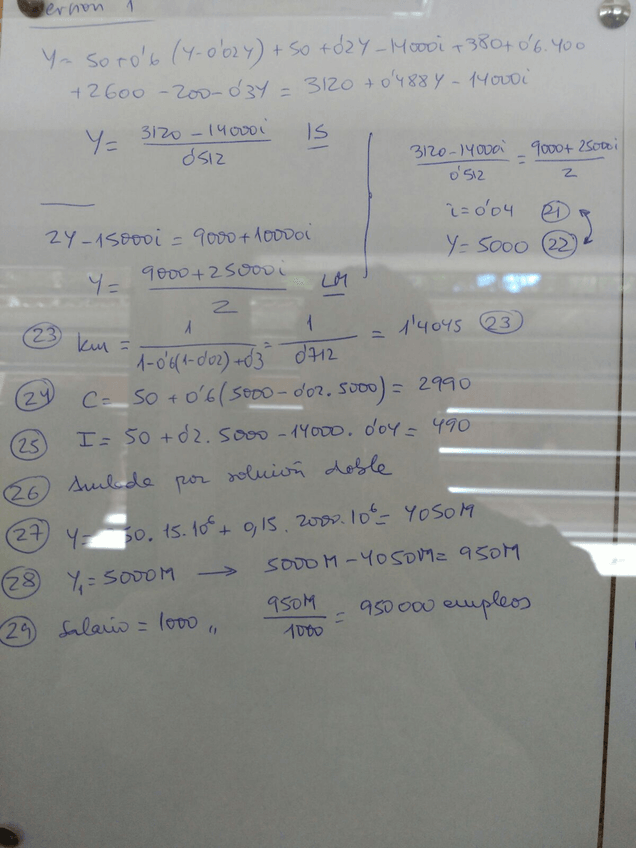 Version 1
Y = 50 + 0'6 (Y - 0'02Y) + 50 + 0'2Y - 14000i + 380 + 0'6.400
+ 2600 - 200 - 0'3Y = 3120 + 0'488Y - 14000i
Y = 3120 - 14000i / 0'512 IS
2Y - 15000i = 9000 + 10000i
Y = 9000 + 25000i / 2 LM
3120 - 14000i / 0'512 = 9000 + 25000i / 2
i = 0'04 21
Y = 5000 22
23 km = 1 / 1 - 0'6(1 - 0'02) + 0'3 = 1 / 0'712 = 1'4045 23
24 C = 50 + 0'6 (5000 - 0'02. 5000) = 2990
25 I = 50 + 0'2. 5000 - 14000. 0'04 = 490
26 Anulada por solución doble
27 Y = 50. 15. 10⁶ + 0,15. 2000. 10⁶ = 4050M
28 Y₁ = 5000M → 5000M - 4050M = 950M
29 Salario = 1000 ,, 950M / 1000 = 950000 empleos